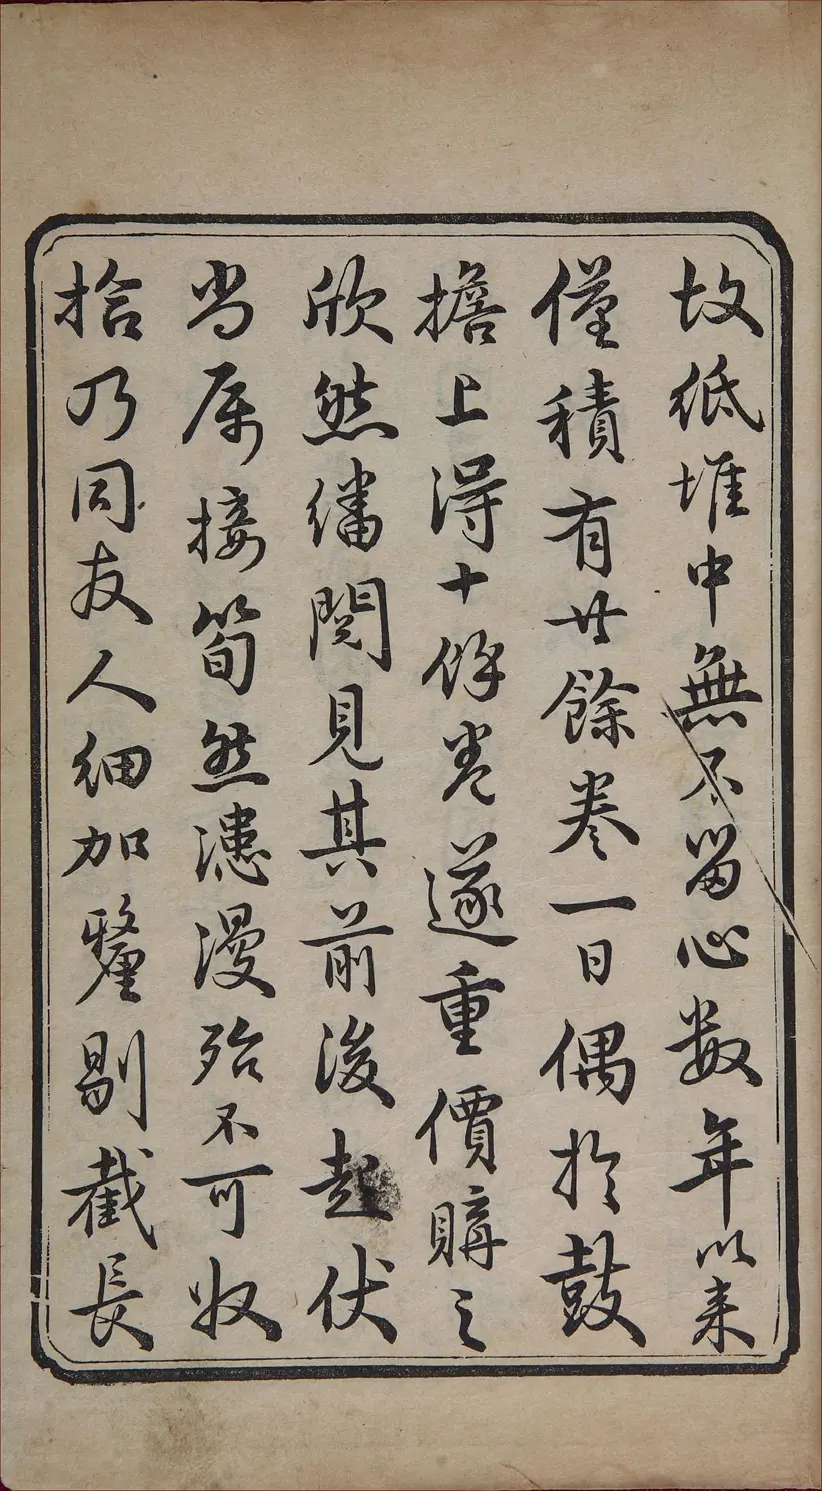 故紙堆中無不留心數年以来
僅積有廿餘卷一日偶於鼓
擔上得十餘卷遂重價購之
欣然繙閱見其前後起伏
尚属接筍然漶漫殆不可收
拾乃同友人细加釐剔截長